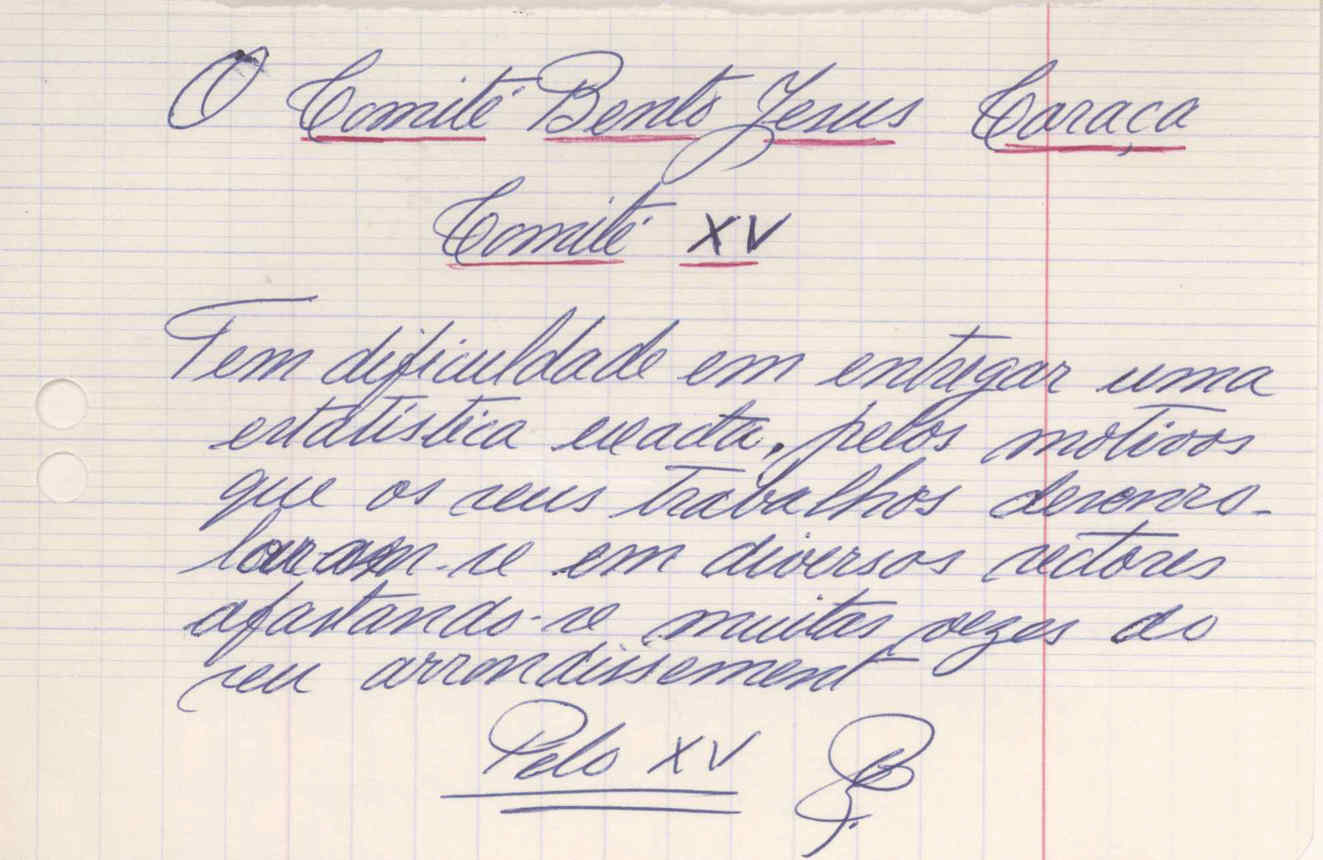 O Comité Bento Jesus Caraça
Comité XV
Tem dificuldade em entregar uma
estatística exacta, pelos motivos
que os seus trabalhos desenro-
laram-se em diversos sectores
afastando-se muitas vezes do
seu arrondissement
Pelo XV